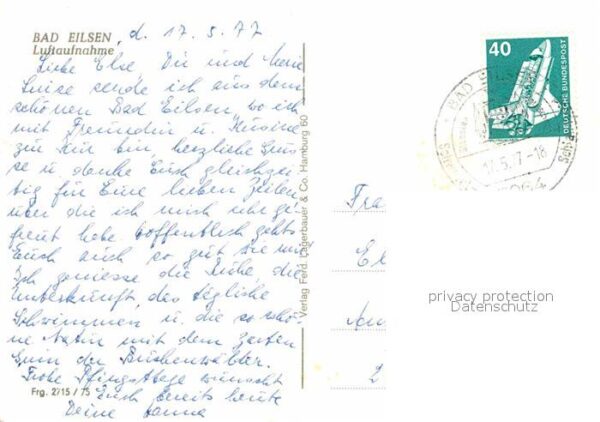 BAD EILSEN, d. 17.5.77
Luftaufnahme
Liebe Else, Dir und
Luise sende ich aus dem
schönen Bad Eilsen, wo ich
mit Freundin u. Kusine
zur Kur bin, herzliche Grüs-
se u. danke Euch gleichzei-
tig für Eure lieben Zeilen,
über die ich mich sehr ge-
freut habe. Hoffentlich gehts
Euch auch so gut wie uns.
Ich geniesse die Ruhe, die
Unterkunft, das tägliche
Schwimmen u. die so schö-
ne Natur mit dem zarten
Grün der Buchenwälder.
Frohe Pfingsttage wünscht
Euch bereits heute
Deine Hanna
Frg. 2715 / 75
Verlag Ferd. Lagerbauer & Co. Hamburg 50
40
DEUTSCHE BUNDESPOST
BAD EILSEN
17.5.7-18
3064
Fra
El
2
privacy protection
Datenschutz